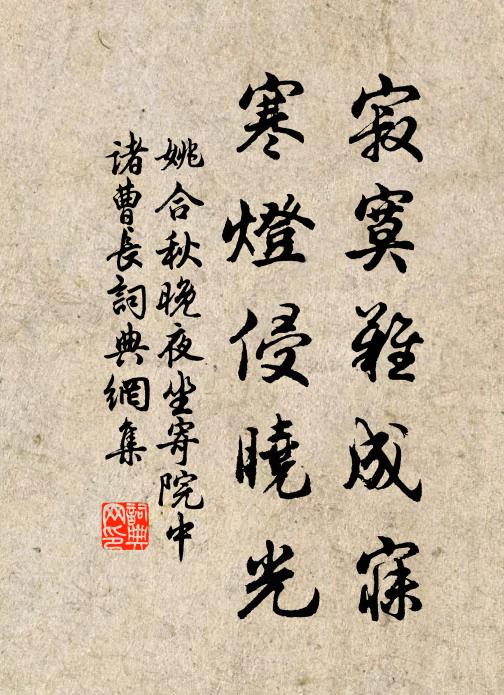 寂寞難成寐
寒燈侵曉光
姚合秋晚夜坐寄院中
諸曹長詞典網集
詞典
网印